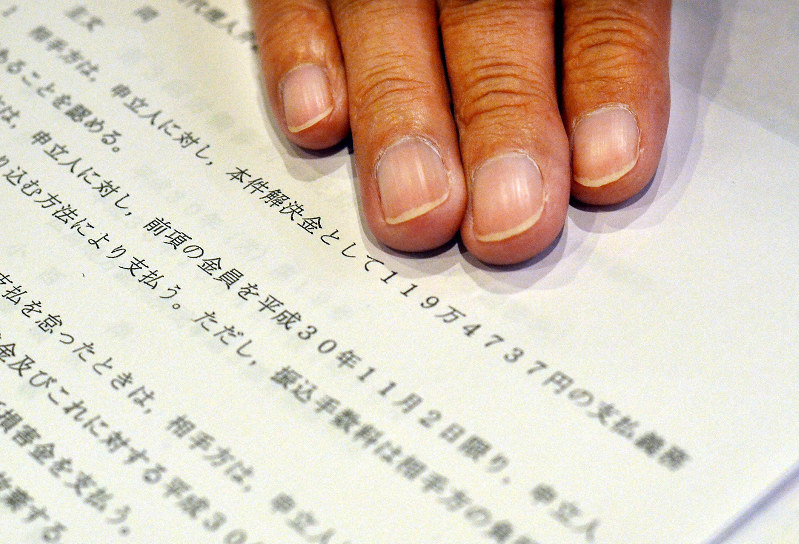 代理人弁
主文
１　相手方は，申立人に対し，本件解決金として１１９万４７３７円の支払義務
あることを認める。
は，申立人に対し，前項の金員を平成３０年１１月２日限り，申立人
り込む方法により支払う。ただし，振込手数料は相手方の負担
支払を怠ったときは，相手方は，申立人
金及びこれに対する平成３０
損害金を支払う。
放棄する